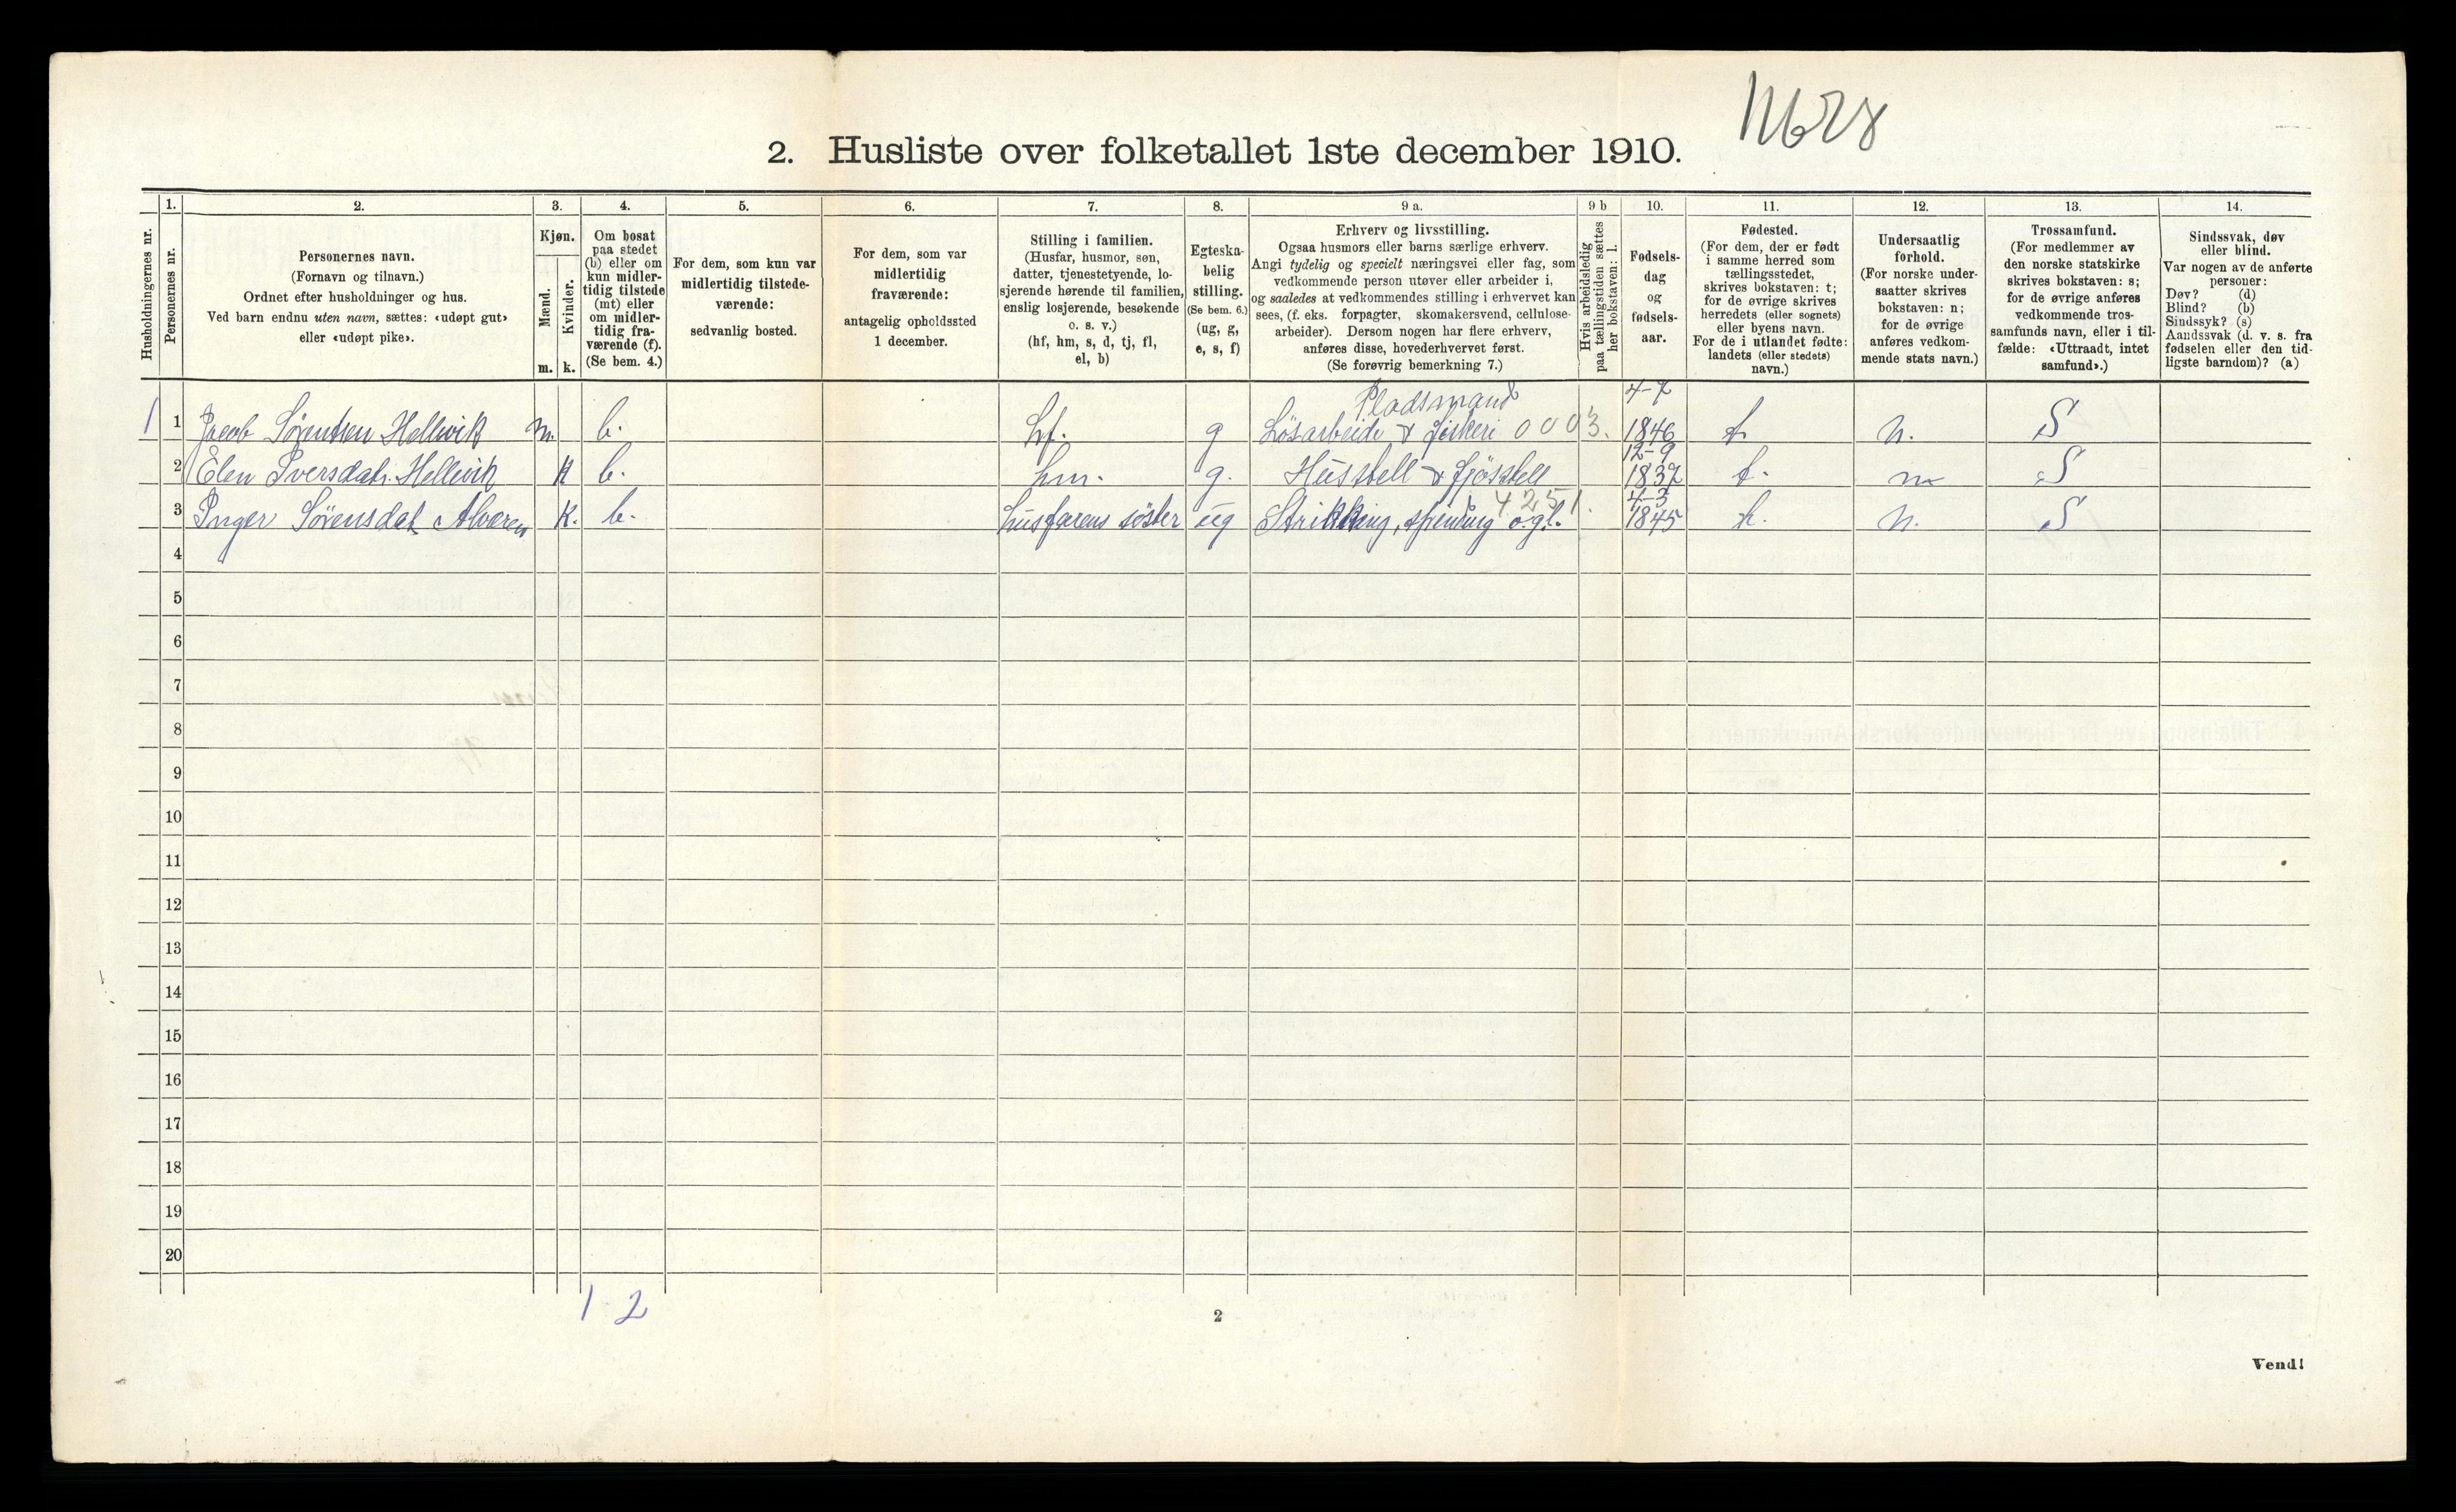 1628
2. Husliste over folketallet 1ste december 1910.
Husholdningernes nr.
1.
Personernes nr.
2.
Personernes navn.
(Fornavn og tilnavn.)
Ordnet efter husholdninger og hus.
Ved barn endnu uten navn, sættes: «udøpt gut»
eller «udøpt pike».
3.
Kjøn.
Mænd.
Kvinder.
m. k.
4.
Om bosat
paa stedet
(b) eller om
kun midler-
tidig tilstede
(mt) eller
om midler-
tidig fra-
værende (f).
(Se bem. 4.)
5.
For dem, som kun var
midlertidig tilstede-
værende:
sedvanlig bosted.
6.
For dem, som var
midlertidig
fraværende:
antagelig opholdssted
1 december.
7.
Stilling i familien.
(Husfar, husmor, søn,
datter, tjenestetyende, lo-
sjerende hørende til familien,
enslig losjerende, besøkende
o. s. v.)
(hf, hm, s, d, tj, fl,
el, b)
8.
Egteska-
belig
stilling.
(Se bem. 6.)
(ug, g,
e, s, f)
9 a.
Erhverv og livsstilling.
Ogsaa husmors eller barns særlige erhverv.
Angi tydelig og specielt næringsvei eller fag, som
vedkommende person utøver eller arbeider i,
og saaledes at vedkommendes stilling i erhvervet kan
sees, (f. eks. forpagter, skomakersvend, cellulose-
arbeider). Dersom nogen har flere erhverv,
anføres disse, hovederhvervet først.
(Se forøvrig bemerkning 7.)
9 b
Hvis arbeidsledig
paa tællingstiden sættes
her bokstaven: l.
10.
Fødsels-
dag
og
fødsels-
aar.
11.
Fødested.
(For dem, der er født
i samme herred som
tællingsstedet,
skrives bokstaven: t;
for de øvrige skrives
herredets (eller sognets)
eller byens navn.
For de i utlandet fødte:
landets (eller stedets)
navn.)
12.
Undersaatlig
forhold.
(For norske under-
saatter skrives
bokstaven: n;
for de øvrige
anføres vedkom-
mende stats navn.)
13.
Trossamfund.
(For medlemmer av
den norske statskirke
skrives bokstaven: s;
for de øvrige anføres
vedkommende tros-
samfunds navn, eller i til-
fælde: «Uttraadt, intet
samfund».)
14.
Sindssvak, døv
eller blind.
Var nogen av de anførte
personer:
Døv? (d)
Blind? (b)
Sindssyk? (s)
Aandssvak (d. v. s. fra
fødselen eller den tid-
ligste barndom)? (a)
Pladsmand 4-7
1 1 Jacob Sørensen Hellevik m. b. hf. g Løsarbeide & fiskeri 0003. 1846 t. n. S
12-9
2 Elen Iversdatr. Hellevik k b. hm. g. Husstell & fjösstell 1837 t. n S
4251. 4-3
3 Inger Sørensdat k. b. husfarens söster ug Strikking, spinding o.gl. 1845 t. n. S
4
5
6
7
8
9
10
11
12
13
14
15
16
17
18
19
20
1 2
2
Vend!